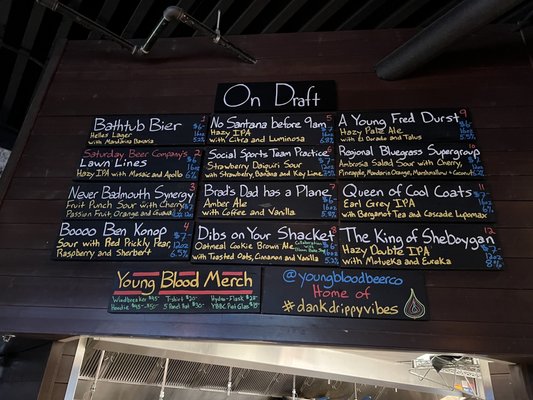 On Draft
Bathtub Bier 1
Helles Lager
with Mandarina Bavaria
Saturday Beer Company's 2
Lawn Lines
Hazy IPA with Mosaic and Apollo
Never Badmouth Synergy 3
Fruit Punch Sour with Cherry,
Passion Fruit, Orange and Guava
Boooo Ben Konop 4
Sour with Red Prickly Pear,
Raspberry and Sherbert
No Santana before 9am 5
Hazy IPA
with Citra and Luminosa
Social Sports Team Practice 6
Strawberry Daiquiri Sour
with Strawberry, Banana and Key Lime
Brad's Dad has a Plane 7
Amber Ale
with Coffee and Vanilla
Dibs on Your Shacket 8
Oatmeal Cookie Brown Ale
with Toasted Oats, Cinnamon and Vanilla
A Young Fred Durst 9
Hazy Pale Ale
with El Dorado and Talus
Regional Bluegrass Supergroup
Ambrosia Salad Sour with Cherry,
Pineapple, Mandarin Orange, Marshmallow & Coconut
Queen of Cool Coats 11
Earl Grey IPA
with Bergamot Tea and Cascade Lupomax
The King of Sheboygan 12
Hazy Double IPA
with Motueka and Eureka
Young Blood Merch
Windbreaker $45 T-shirt $20 Hydro-Flask
Hoodie
@youngbloodbeerco
Home of
#dankdrippyvibes